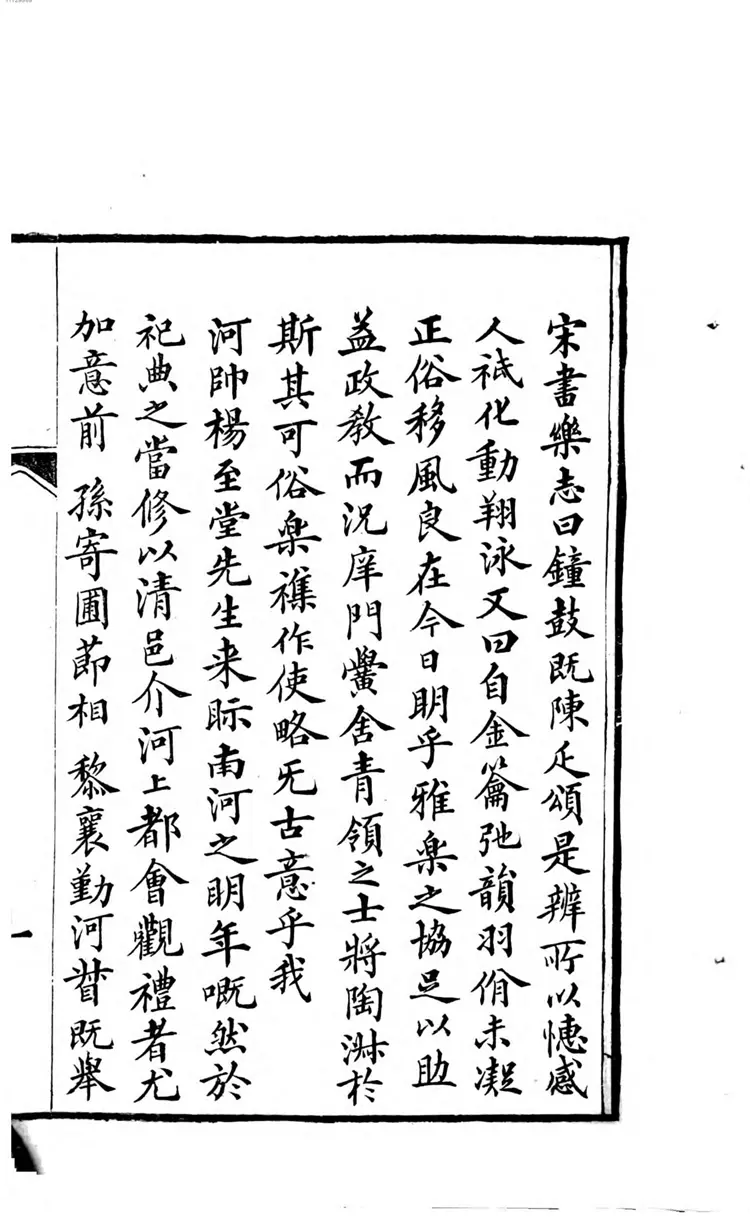 宋書樂志曰鐘鼓既陳疋頌是辨所以憓感
人祗化動翔泳又曰自金籥弛韻羽佾未凝
正俗移風良在今日明乎雅樂之協足以助
益政敎而況庠門黌舍青領之士將陶淑於
斯其可俗樂襍作使略旡古意乎我
河帥楊至堂先生来眎南河之明年嘅然於
祀典之當修以清邑介河上都會觀禮者尤
加意前 孫寄圃節相 黎襄勤河督既舉